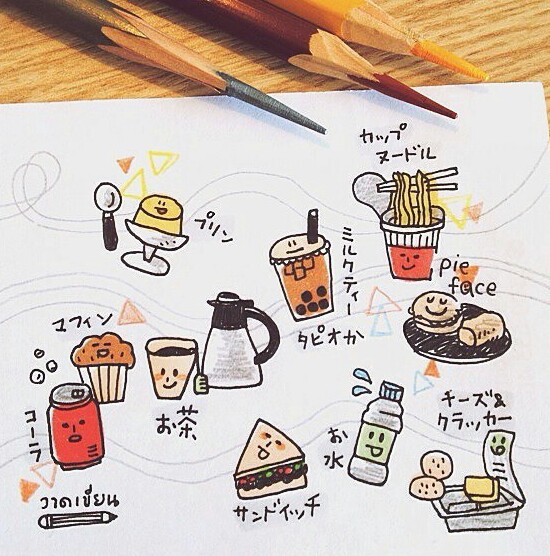 カップ
ヌードル
プリン
ミルクティー
タピオか
pie
face
マフィン
コーラ
お茶
お
水
チーズ&
クラッカー
サンドイッチ
วาดเขียน